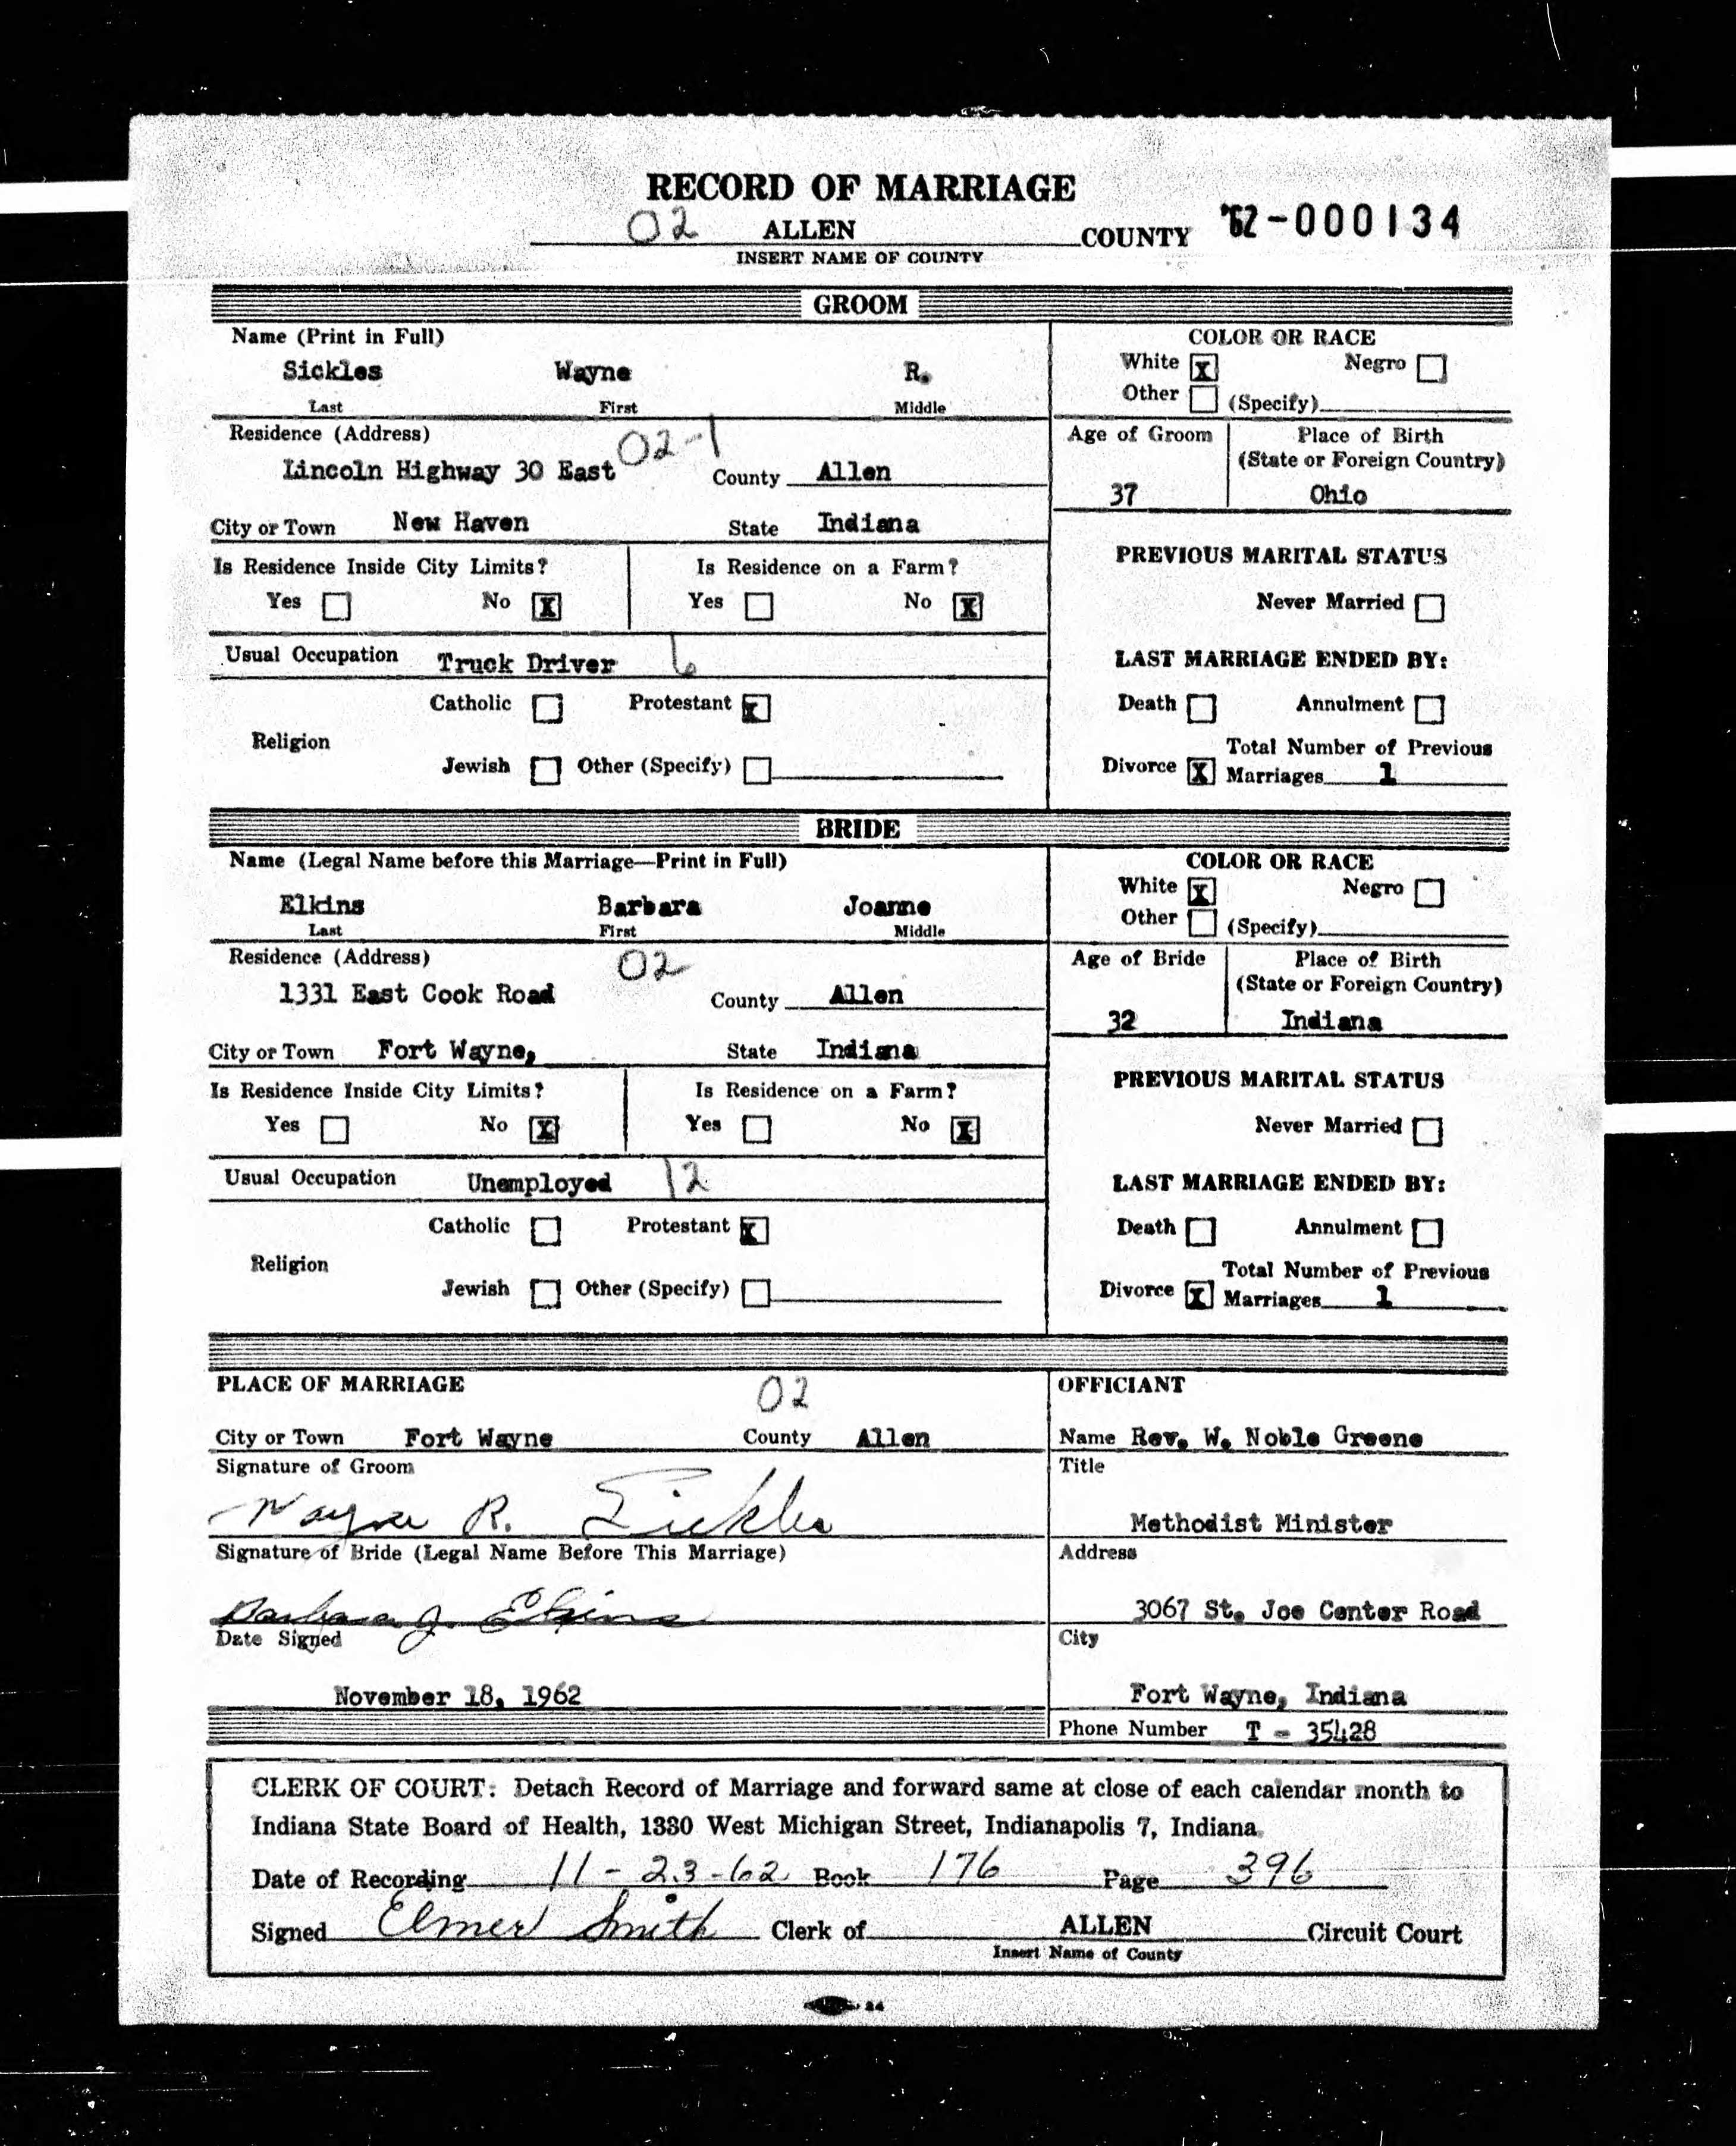 RECORD OF MARRIAGE
02 ALLEN COUNTY '62-000134
INSERT NAME OF COUNTY
GROOM
Name (Print in Full)
Sickles Wayne R.
Last First Middle
COLOR OR RACE
White X Negro
Other (Specify)
Residence (Address) 02-1
Lincoln Highway 30 East County Allen
Age of Groom Place of Birth
(State or Foreign Country)
37 Ohio
City or Town New Haven State Indiana
Is Residence Inside City Limits? Is Residence on a Farm?
Yes No X Yes No X
PREVIOUS MARITAL STATUS
Never Married
Usual Occupation Truck Driver 6
LAST MARRIAGE ENDED BY:
Catholic Protestant X
Religion
Jewish Other (Specify)
Death Annulment
Total Number of Previous
Divorce X Marriages 1
BRIDE
Name (Legal Name before this Marriage—Print in Full)
Elkins Barbara Joanne
Last First Middle
COLOR OR RACE
White X Negro
Other (Specify)
Residence (Address) 02
1331 East Cook Road County Allen
Age of Bride Place of Birth
(State or Foreign Country)
32 Indiana
City or Town Fort Wayne, State Indiana
Is Residence Inside City Limits? Is Residence on a Farm?
Yes No X Yes No X
PREVIOUS MARITAL STATUS
Never Married
Usual Occupation Unemployed 12
LAST MARRIAGE ENDED BY:
Catholic Protestant X
Religion
Jewish Other (Specify)
Death Annulment
Total Number of Previous
Divorce X Marriages 1
PLACE OF MARRIAGE 02
City or Town Fort Wayne County Allen
Signature of Groom
Wayne R. Sickles
Signature of Bride (Legal Name Before This Marriage)
Barbara J. Elkins
Date Signed
November 18, 1962
OFFICIANT
Name Rev. W. Noble Greene
Title
Methodist Minister
Address
3067 St. Joe Center Road
City
Fort Wayne, Indiana
Phone Number T - 35428
CLERK OF COURT: Detach Record of Marriage and forward same at close of each calendar month to
Indiana State Board of Health, 1330 West Michigan Street, Indianapolis 7, Indiana.
Date of Recording 11-23-62 Book 176 Page 396
Signed Elmer Smith Clerk of ALLEN Circuit Court
Insert Name of County